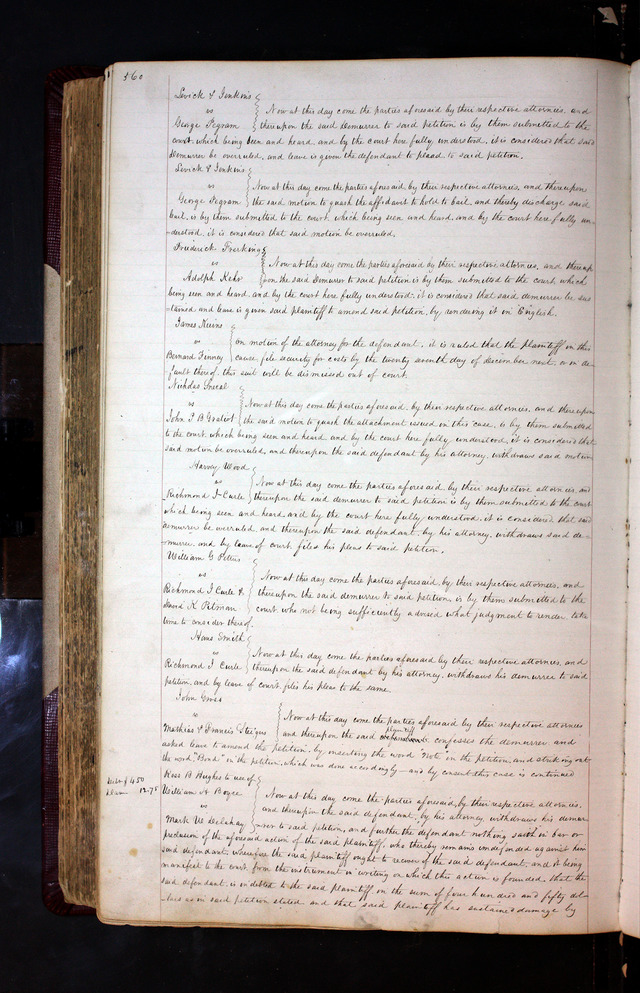 560
Levick & Jenkins
vs
George Pegram
Now at this day come the parties aforesaid by their respective attornies, and
thereupon the said Demurrer to said petition is by them submitted to the
court, which being seen and heard, and by the court here fully understood, it is considered that said
Demurrer be overruled, and leave is given the defendant to plead to said petition.
Levick & Jenkins
vs
George Pegram
Now at this day come the parties aforesaid by their respective attornies, and thereupon
the said motion to quash the affidavit to hold to bail, and thereby discharge said
bail, is by them submitted to the court, which being seen and heard, and by the court here fully un-
derstood, it is considered that said motion be overruled.
Frederick
vs
Adolph Kehr
Now at this day come the parties aforesaid by their respective attornies, and thereup
on the said Demurrer to said petition is by them submitted to the court, which
being seen and heard, and by the court here fully understood, it is considered that said demurrer be sus
tained, and leave is given said plaintiff to amend said petition, by rendering it in English.
James Keene
vs
Bernard Finney
On motion of the attorney for the defendant, it is ruled that the plaintiff in this
cause, file security for costs by the twenty seventh day of December next, or in de-
fault thereof, this suit will be dismissed out of court.
Nicholas
vs
John P B Gratiot
Now at this day come the parties aforesaid, by their respective attornies, and thereupon
the said motion to quash the attachment issued in this case, is by them submitted
to the court, which being seen and heard, and by the court here fully understood, it is considered that
said motion be overruled, and thereupon the said defendant by his attorney, withdraws said motion
Harvey Wood
vs
Richmond J Curle
Now at this day come the parties aforesaid, by their respective attornies, and
thereupon the said demurrer to said petition is by them submitted to the court
which being seen and heard, and by the court here fully understood, it is considered, that said
demurrer be overruled, and thereupon the said defendant, by his attorney, withdraws said de-
murrer, and by leave of court files his pleas to said petition.
William G Pettus
vs
Richmond J Curle &
David K Pitman
Now at this day come the parties aforesaid, by their respective attornies, and
thereupon the said demurrer to said petition, is by them submitted to the
court, who not being sufficiently advised what judgment to render take
time to consider thereof.
Hans Smith
vs
Richmond J Curle
Now at this day come the parties aforesaid by their respective attornies, and
thereupon the said defendant by his attorney, withdraws his demurrer to said
petition, and by leave of court files his pleas to the same.
John
vs
Mathias & Francis Steigers
Now at this day come the parties aforesaid by their respective attornies
and thereupon the said plaintiff confesses the demurrer and
asked leave to amend the petition, by inserting the word "Note" in the petition, and striking out
the word "Bond" in the petition, which was done accordingly — and by consent this case is continued
Debt $ 450
Dam 12.75
Ross B Hughes to use of
William H Boyce
vs
Mark W Delahay
Now at this day come the parties aforesaid, by their respective attornies,
and thereupon the said defendant, by his attorney, withdraws his demur
rer to said petition, and further the defendant nothing saith in bar or
preclusion of the aforesaid action of the said plaintiff, who thereby remains undefended against him
said defendant, wherefore the said plaintiff ought to recover of the said defendant, and it being
manifest to the court, from the instrument in writing on which this action is founded, that the
said defendant, is indebted to the said plaintiff in the sum of four hundred and fifty dol
lars as in said petition stated, and that said plaintiff has sustained damage by